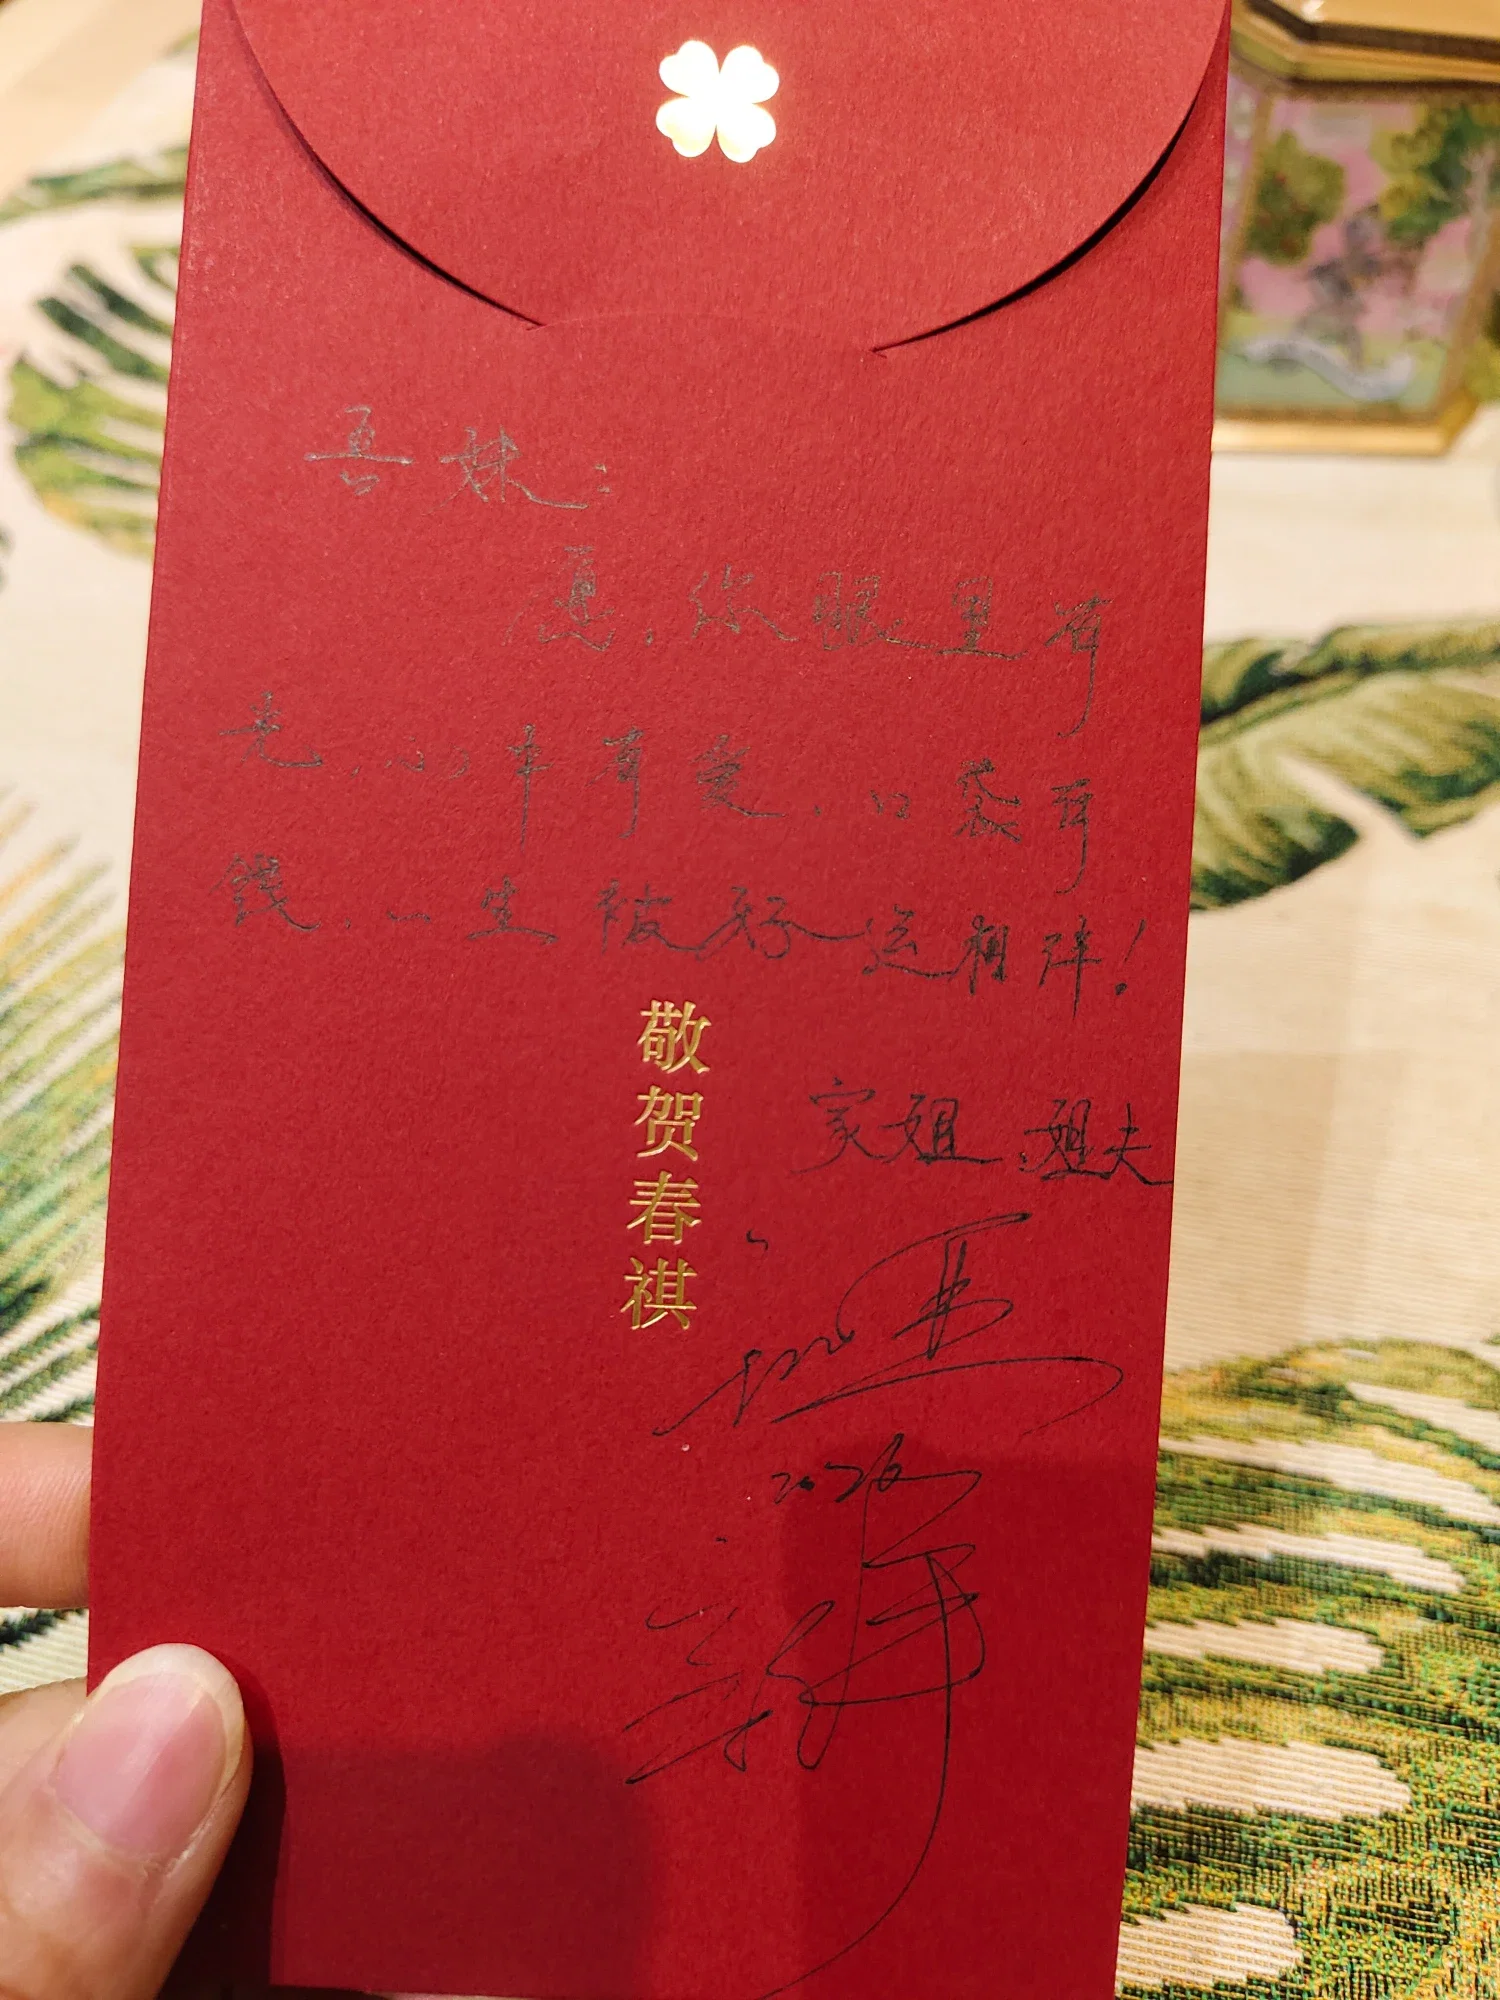 吾妹：
愿，你眼里有
光，心中有爱，口袋有
钱，一生被好运相伴！
敬贺春祺
家姐、姐夫
2026